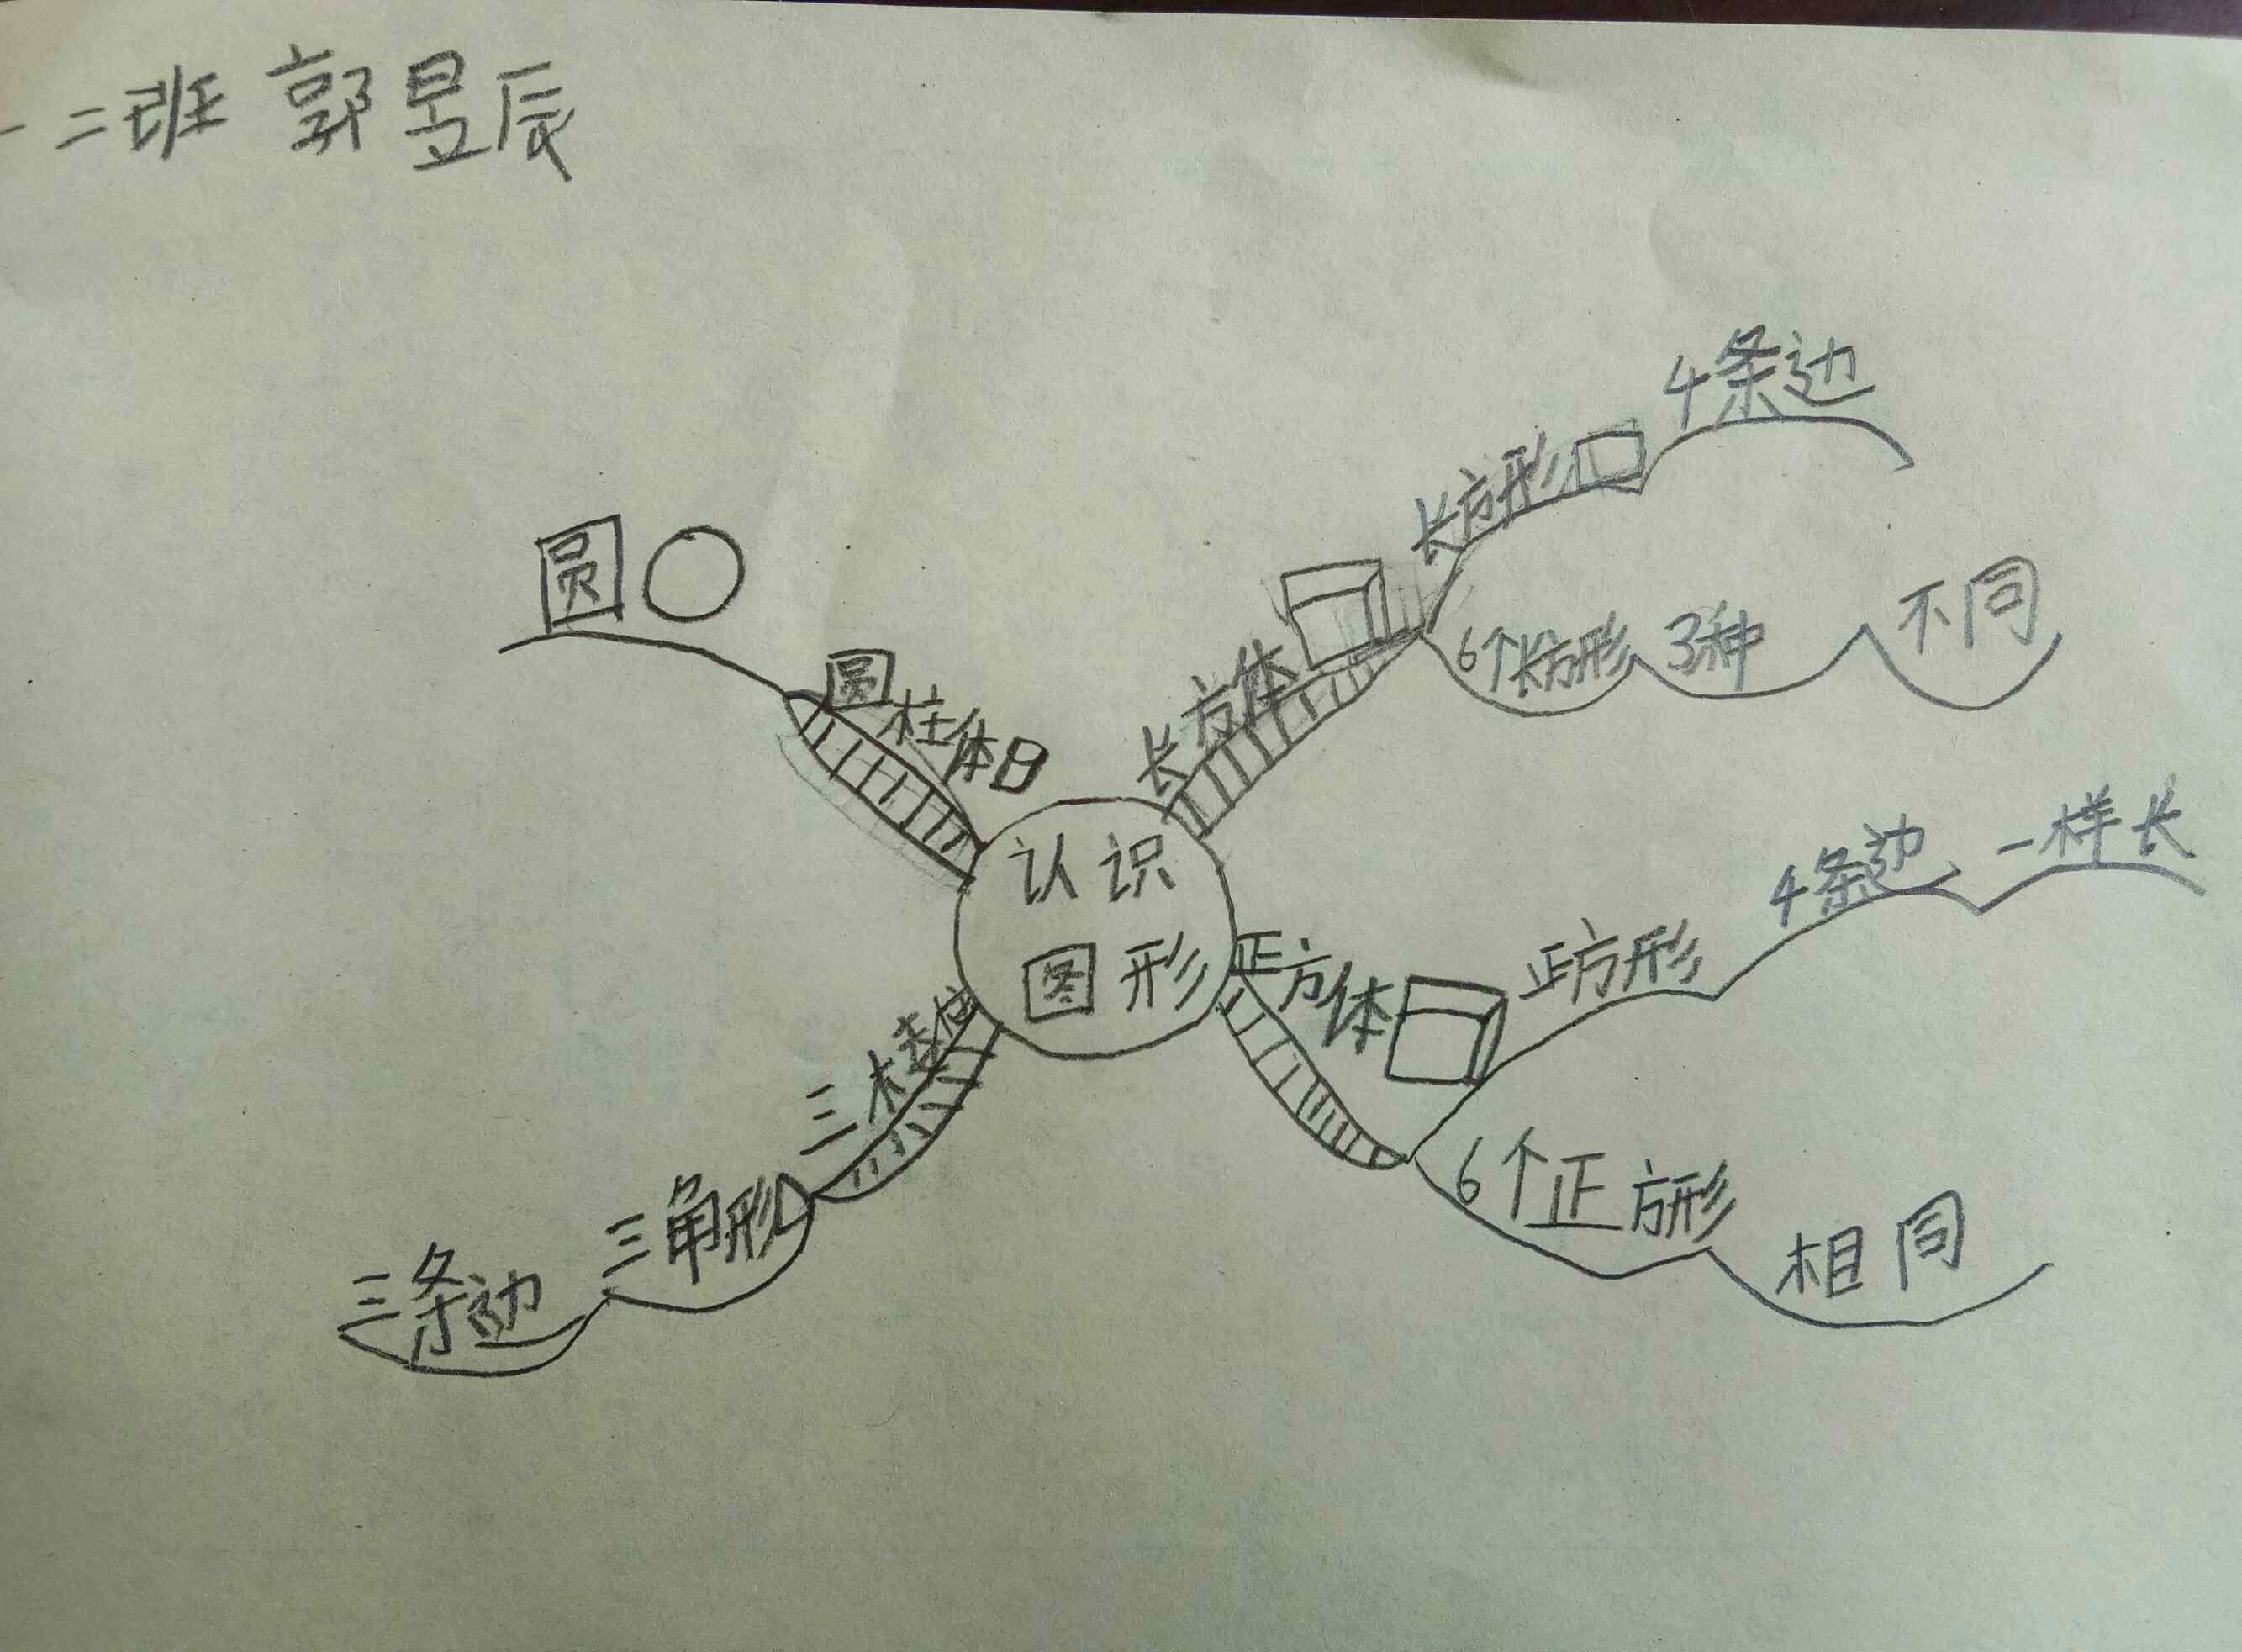 一二班 郭昱辰
认识
图形
长方体
长方形
4条边
6个长方形
3种
不同
正方体
正方形
4条边
一样长
6个正方形
相同
三柱体
三角形
三条边
圆柱体
圆